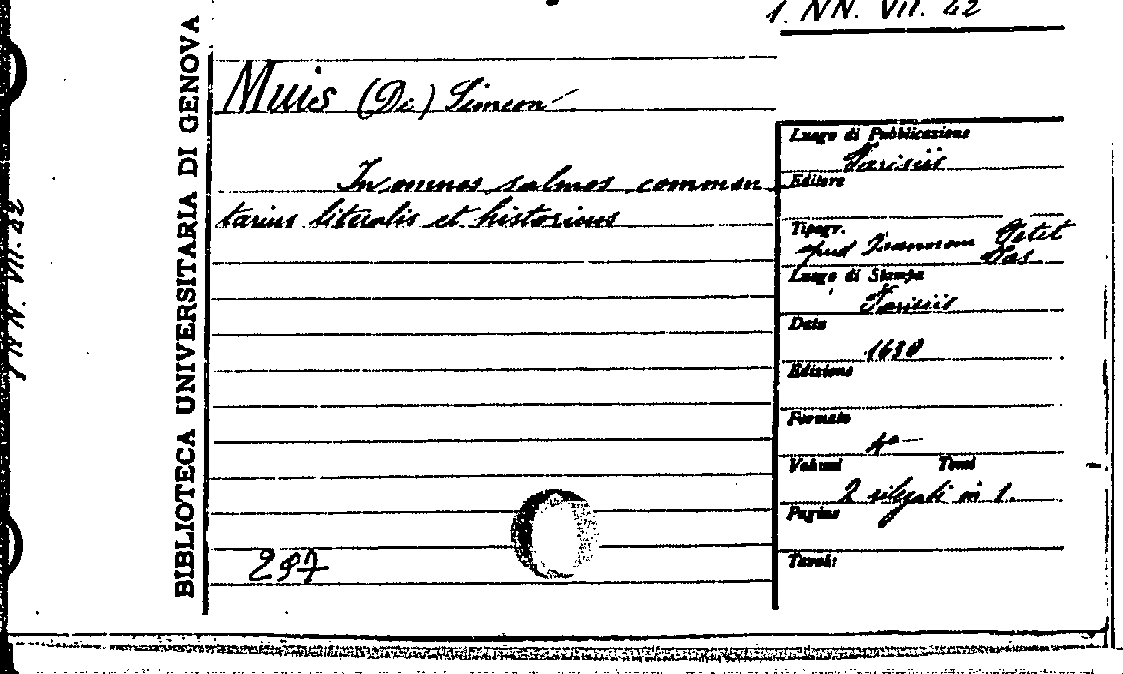 1. NN. VII. 42
BIBLIOTECA UNIVERSITARIA DI GENOVA
Muis (De) Simeon
In omnes salmos commen
tarius literalis et historicus
297
Luogo di Pubblicazione
Parisiis
Editore
Tipogr.
apud Petet
Luogo di Stampa
Parisiis
Data
1630
Edizione
Formato
4°
Volumi Tomi
2 rilegati in 1.
Pagine
Tavole
NN. VII. 42